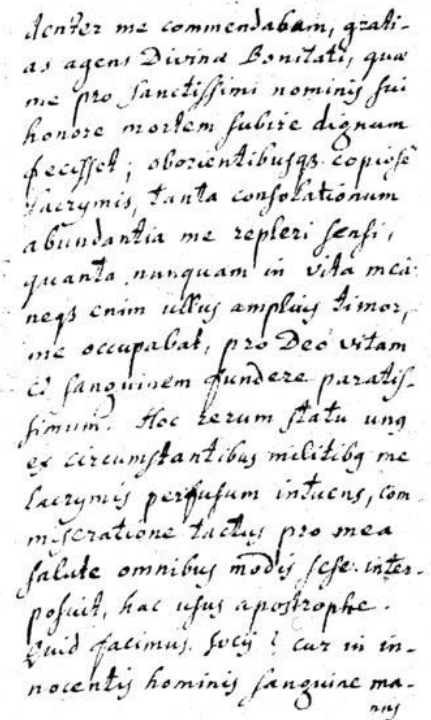 denter me commendabam, grati-
as agens Divinæ Bonitati, quæ
me pro sanctissimi nominis sui
honore mortem subire dignum
fecisset; oborientibusqꝫ copiose
lacrymis, tanta consolationum
abundantia me repleri sensi,
quanta nunquam in vita mea:
neqꝫ enim ullus amplius timor,
me occupabat, pro Deo vitam
et sanguinem fundere paratis-
simum. Hoc rerum statu unꝯ
ex circumstantibus militibꝯ me
lacrymis perfusum intuens, com
miseratione tactus pro mea
salute omnibus modis sese inter-
posuit, hac usus apostrophe.
Quid facimus socij? cur in in-
nocentis hominis sanguine ma-
nus